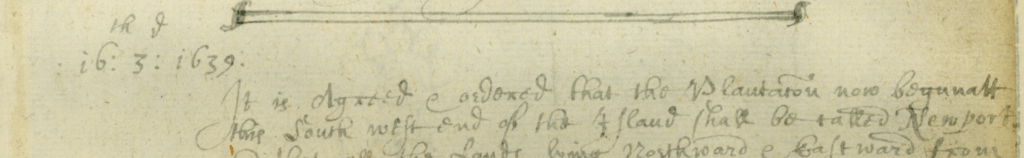 th d
16: 3: 1639:
It is Agreed & ordered that the Plantatiõ now begunatt
this South west end of the Island shall be called Newport:
& that all the Lands lying Northward & Eastward from